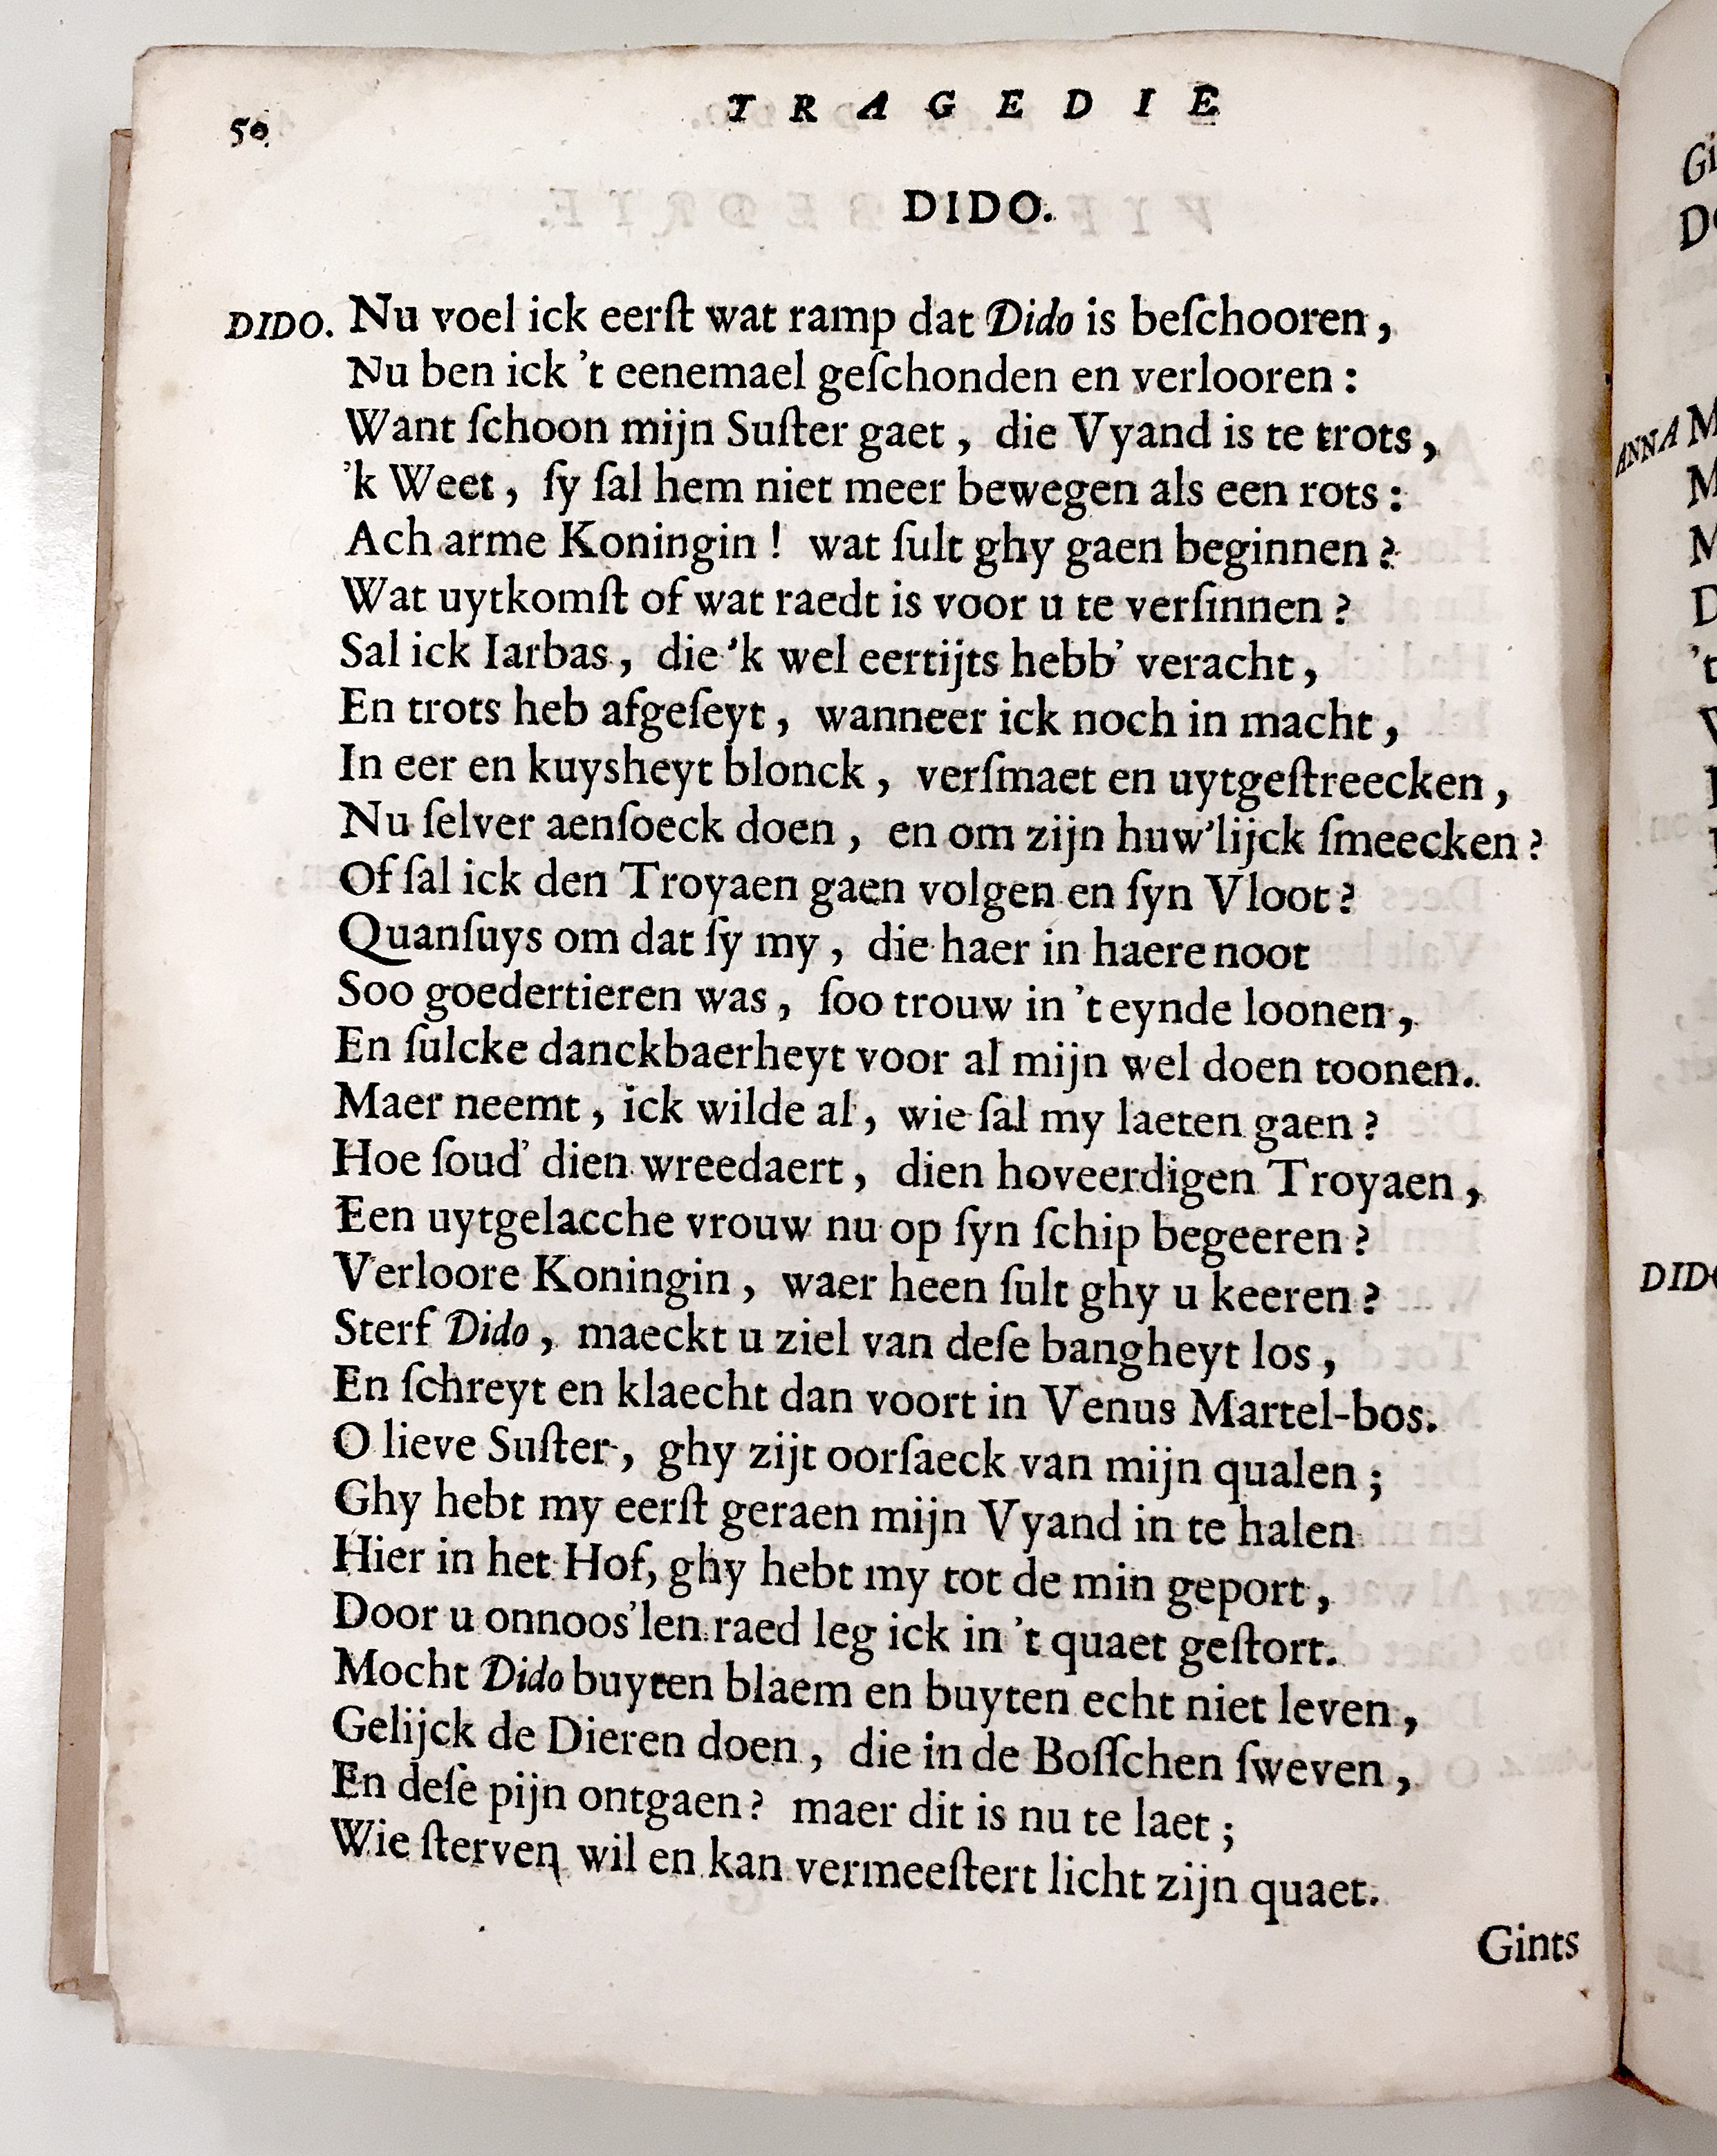 50.
TRAGEDIE
DIDO.
DIDO. Nu voel ick eerſt wat ramp dat Dido is beſchooren,
Nu ben ick 't eenemael geſchonden en verlooren:
Want ſchoon mijn Suſter gaet, die Vyand is te trots,
'k Weet, ſy ſal hem niet meer bewegen als een rots:
Ach arme Koningin! wat ſult ghy gaen beginnen?
Wat uytkomſt of wat raedt is voor u te verſinnen?
Sal ick Iarbas, die 'k wel eertijts hebb' veracht,
En trots heb afgeſeyt, wanneer ick noch in macht,
In eer en kuysheyt blonck, verſmaet en uytgeſtreecken,
Nu ſelver aenſoeck doen, en om zijn huw'lijck ſmeecken?
Of ſal ick den Troyaen gaen volgen en ſyn Vloot?
Quanſuys om dat ſy my, die haer in haere noot
Soo goedertieren was, ſoo trouw in 't eynde loonen,
En ſulcke danckbaerheyt voor al mijn wel doen toonen.
Maer neemt, ick wilde al, wie ſal my laeten gaen?
Hoe ſoud' dien wreedaert, dien hoveerdigen Troyaen,
Een uytgelacche vrouw nu op ſyn ſchip begeeren?
Verloore Koningin, waer heen ſult ghy u keeren?
Sterf Dido, maeckt u ziel van deſe bangheyt los,
En ſchreyt en klaecht dan voort in Venus Martel-bos.
O lieve Suſter, ghy zijt oorſaeck van mijn qualen;
Ghy hebt my eerſt geraen mijn Vyand in te halen
Hier in het Hof, ghy hebt my tot de min geport,
Door u onnoos'len raed leg ick in 't quaet geſtort.
Mocht Dido buyten blaem en buyten echt niet leven,
Gelijck de Dieren doen, die in de Boſſchen ſweven,
En deſe pijn ontgaen? maer dit is nu te laet;
Wie ſterven wil en kan vermeeſtert licht zijn quaet.
Gints
ANNA